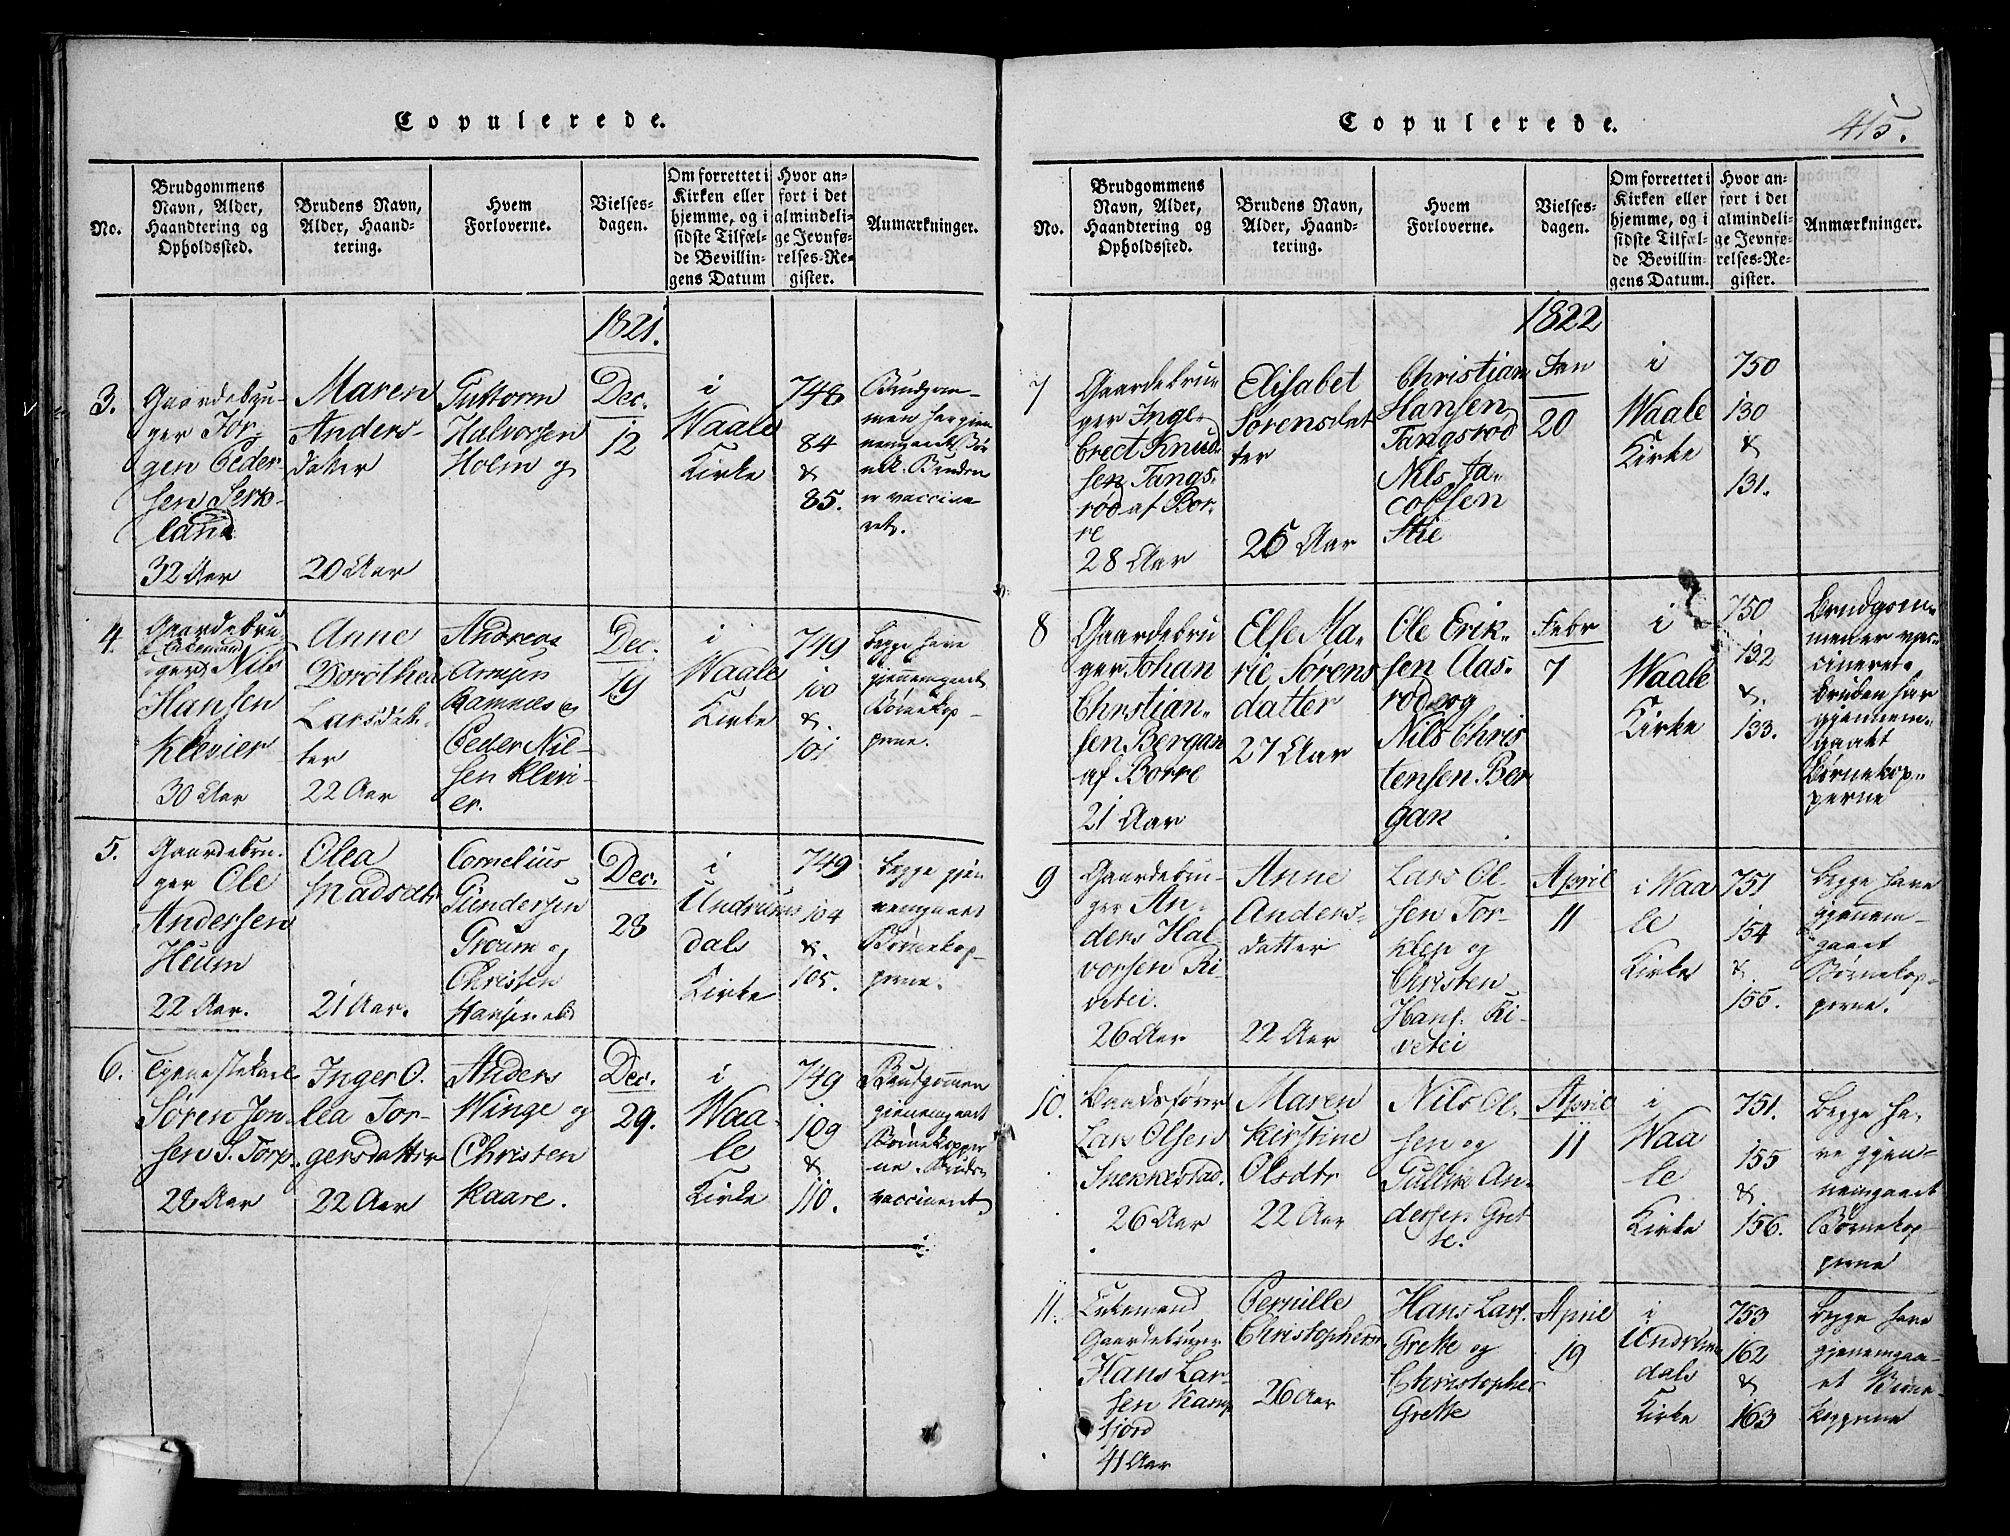 Copulerede.
No.
Brudgommens
Navn, Alder,
Haandtering og
Opholdssted.
Brudens Navn,
Alder, Haand-
tering.
Hvem
Forloverne.
Vielses-
dagen.
Om forrettet i
Kirken eller
hjemme, og i
sidste Tilfæl-
de Bevillin-
gens Datum
Hvor an-
ført i det
almindeli-
ge Jevnfø-
relses-Re-
gister.
Anmærkninger.
1821.
3.
Gaardebru-
ger Jør-
gen Peder
sen
land
32 Aar
Maren
Anders-
datter
20 Aar
Guttorm
Halvorsen
Holm og
Dec.
12
i
Waale
Kirke
748
84
&
85.
Brudgom-
men har gjen
nemgaaet Bør
nek. Bruden
er vaccine-
ret.
4.
Gaardebru-
& Enkemand
ger Nils
Hansen
Klevier
30 Aar
Anne
Dorothea
Larsdat-
ter
22 Aar
Andreas
Arnsen
Ramnes og
Peder Nil-
sen Klevi-
er.
Dec.
19
i
Waale
Kirke
749
100
&.
101
begge have
gjennemgaaet
Børnekop-
perne.
5.
Gaardebru-
ger Ole
Andersen
Heum
22 Aar.
Olea
Madsdtr
21 Aar.
Cornelius
Gundersen
Groum og
Christen
Hansen
Dec.
28
i
Undrums
dals
Kirke
749
104
&.
105.
begge gjen
nemgaaet
Børnekop-
perne.
6.
Tjenestekarl
Søren Jon
sen S. Torp.
28 Aar
Inger O.
lea Tor-
gersdatter
22 Aar
Anders
Winge og
Christen
Kaare.
Dec.
29.
i
Waa-
le
Kirke
749
109
&
110.
Brudgommen
gjenemgaaet
Børnekopper
ne. Bruden
vaccineret.
Copulerede.
415.
No.
Brudgommens
Navn, Alder,
Haandtering og
Opholdssted.
Brudens Navn,
Alder, Haand-
tering.
Hvem
Forloverne.
Vielses-
dagen.
Om forrettet i
Kirken eller
hjemme, og i
sidste Tilfæl-
de Bevillin-
gens Datum.
Hvor an-
ført i det
almindeli-
ge Jevnfø-
relses-Re-
gister.
Anmærkninger.
1822
7
Gaardebru-
ger Inge-
brect Knud-
sen Tangs-
rød af Bor-
re
28 Aar
Elisabet
Sørensdat
ter
25 Aar
Christian
Hansen
Tangsrod
Nils Ja-
cobsen
Stie
Jan
20
i
Waale
Kirke
750
130
&
131.
8
Gaardebru
ger Johan
Christian-
sen Bergan
af Borre
21 Aar
Else Ma-
rie Sørens
datter
27 Aar
Ole Erik-
sen Aas-
rod og
Nils Chris
tensen Ber
gan
Febr
7
i
Waale
Kirke
750
132
&.
133.
Brudgom-
men er vac-
cineret.
Bruden har
gjennem-
gaaet
Børnekop-
perne
9
Gaardebru-
ger An-
ders Hal
vorsen Ri-
vetei.
26 Aar
Anne
Anders-
datter
22 Aar
Lars Ol-
sen Tor-
og
Christen
Hans. Ri-
vetei
April
11
i Waa
le
Kirke
751
154
&.
155.
Begge have
gjenem-
gaaet
Børnekop-
perne.
10.
Baadsfører
Lars Olsen
Snekkestad.
26 Aar
Maren
Kirstine
Olsdtr
22 Aar
Nils Ol-
sen og
Gullik An-
dersen Gret
te.
April
11
i
Waa
le
Kirke
751.
155
&.
156.
Begge ha-
ve gjen-
nemgaaet
Børnekop-
perne
11.
Enkemand
Gaardebruger
Hans Lar-
sen Kamp
fjord
41 Aar
Pernille
Christophersd
26 Aar
Hans Lars.
Grette og
Christopher
Grette
April
19
i
Undrum
dals
Kirke
753
162
&
163
Begge have
gjenemgaa-
et Børne-
kopperne